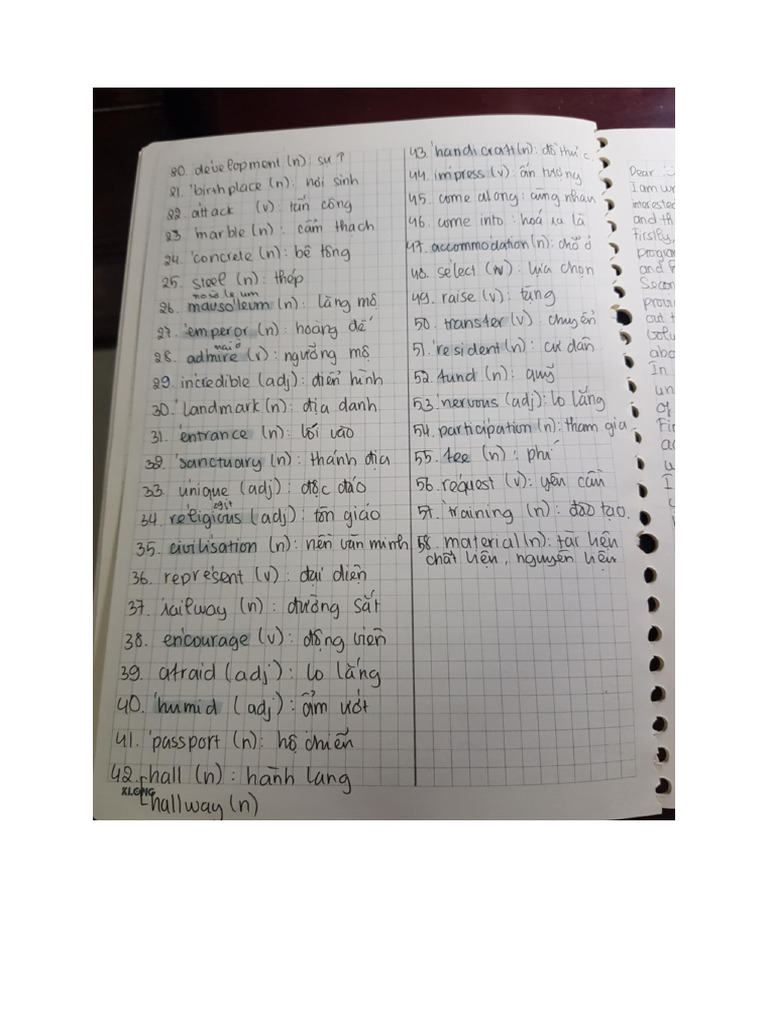 20. development (n): sự ?
21. 'birthplace (n): nơi sinh
22. attack (v): tấn công
23 'marble (n): cẩm thạch
24. 'concrete (n): bê tông
25. steel (n): thép
26. mausoleum (n): lăng mộ
27. 'emperor (n): hoàng đế
28. admire (v): ngưỡng mộ
29 incredible (adj): điển hình
30. 'landmark (n): địa danh
31. 'entrance (n): lối vào
32. 'sanctuary (n): thánh địa
33. unique (adj): độc đáo
34. religious (adj): tôn giáo
35. civilisation (n): nền văn minh
36. represent (v): đại diện
37. railway (n): đường sắt
38. encourage (v): động viên
39. afraid (adj): lo lắng
40. 'humid (adj): ẩm ướt
41. 'passport (n): hộ chiếu
42. hall (n): hành lang
XLONG
hallway (n)
43. 'handicraft (n): đồ thủ c.
44. impress (v): ấn tượng
45. come along: cùng nhau
46. come into: hoá ra là
47. accommodation (n): chỗ ở
48. select (v): lựa chọn
49. raise (v): tăng
50. transfer (v): chuyển
51. 'resident (n): cư dân
52. fund (n): quỹ
53 'nervous (adj): lo lắng
54. participation (n): tham gia
55. fee (n): phí
56. request (v): yêu cầu
57. 'training (n): đào tạo.
58. material (n): tài liệu
chất liệu, nguyên liệu
Dear
I am
interested
and th
Firstly,
and
Secon
out t
abo
In
un
of
I